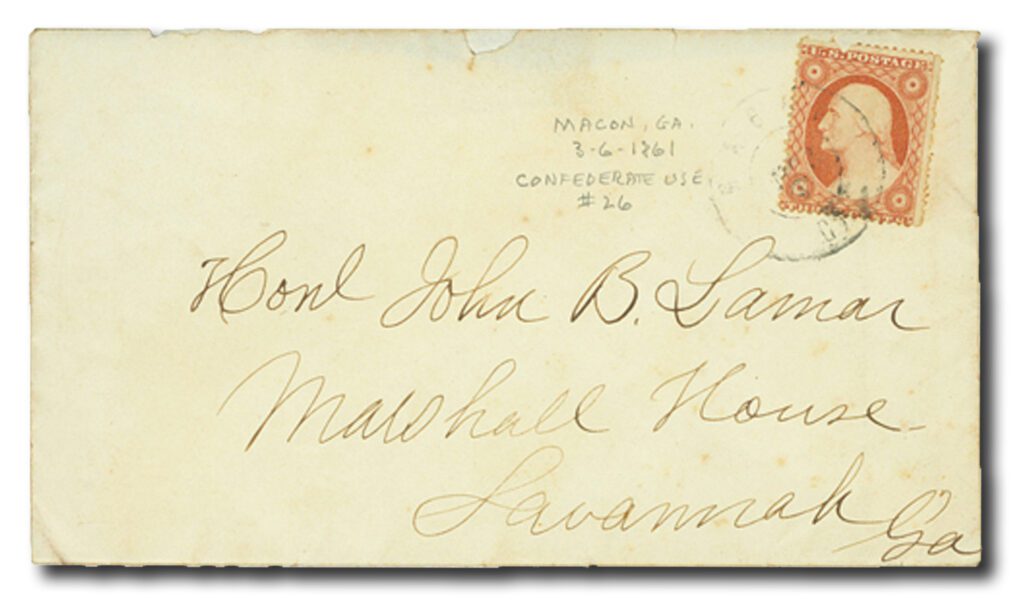 U.S. POSTAGE
MACON, GA.
3-6-1861
CONFEDERATE USE
#26
Honl John B. Lamar
Marshall House
Savannah Ga